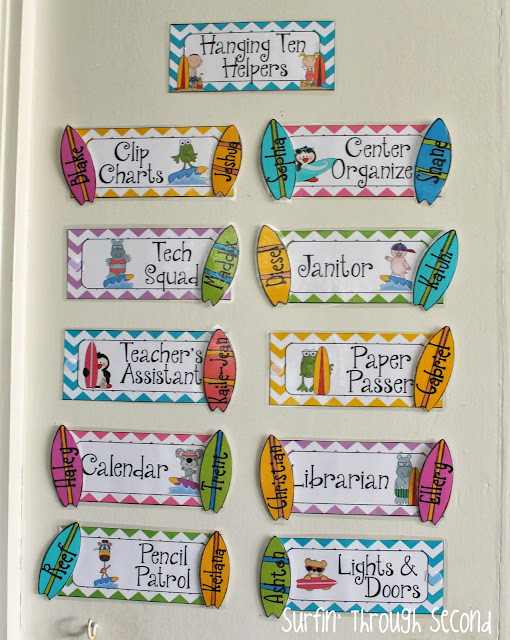 Hanging Ten
Helpers
Blake
Clip
Charts
Joshua
Sophia
Center
Organize
Shane
Tech
Squad
Maddox
Diesel
Janitor
Teacher's
Assistant
Kaile-Jean
Paper
Passer
Gabriel
Haley
Calendar
Trent
Christian
Librarian
Ellery
Reef
Pencil
Patrol
Keilana
Ashton
Lights &
Doors
Surfin' Through Second